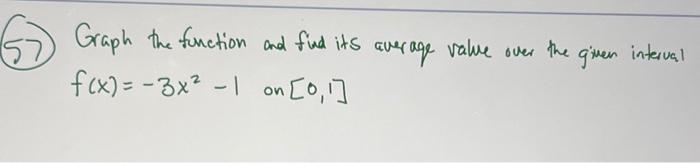 57 Graph the function and find its average value over the given interval
f(x) = -3x² - 1 on [0,1]